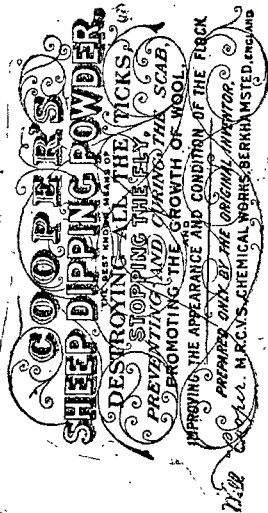 COOPER'S
SHEEP DIPPING POWDER,
THE BEST KNOWN MEANS OF
DESTROYING ALL THE TICKS,
STOPPING THE FLY,
PREVENTING AND CURING THE SCAB,
PROMOTING THE GROWTH OF WOOL,
AND
IMPROVING THE APPEARANCE AND CONDITION OF THE FLOCK.
PREPARED ONLY BY THE ORIGINAL INVENTOR,
Will Cooper. M.R.C.V.S. CHEMICAL WORKS, BERKHAMSTED, ENGLAND